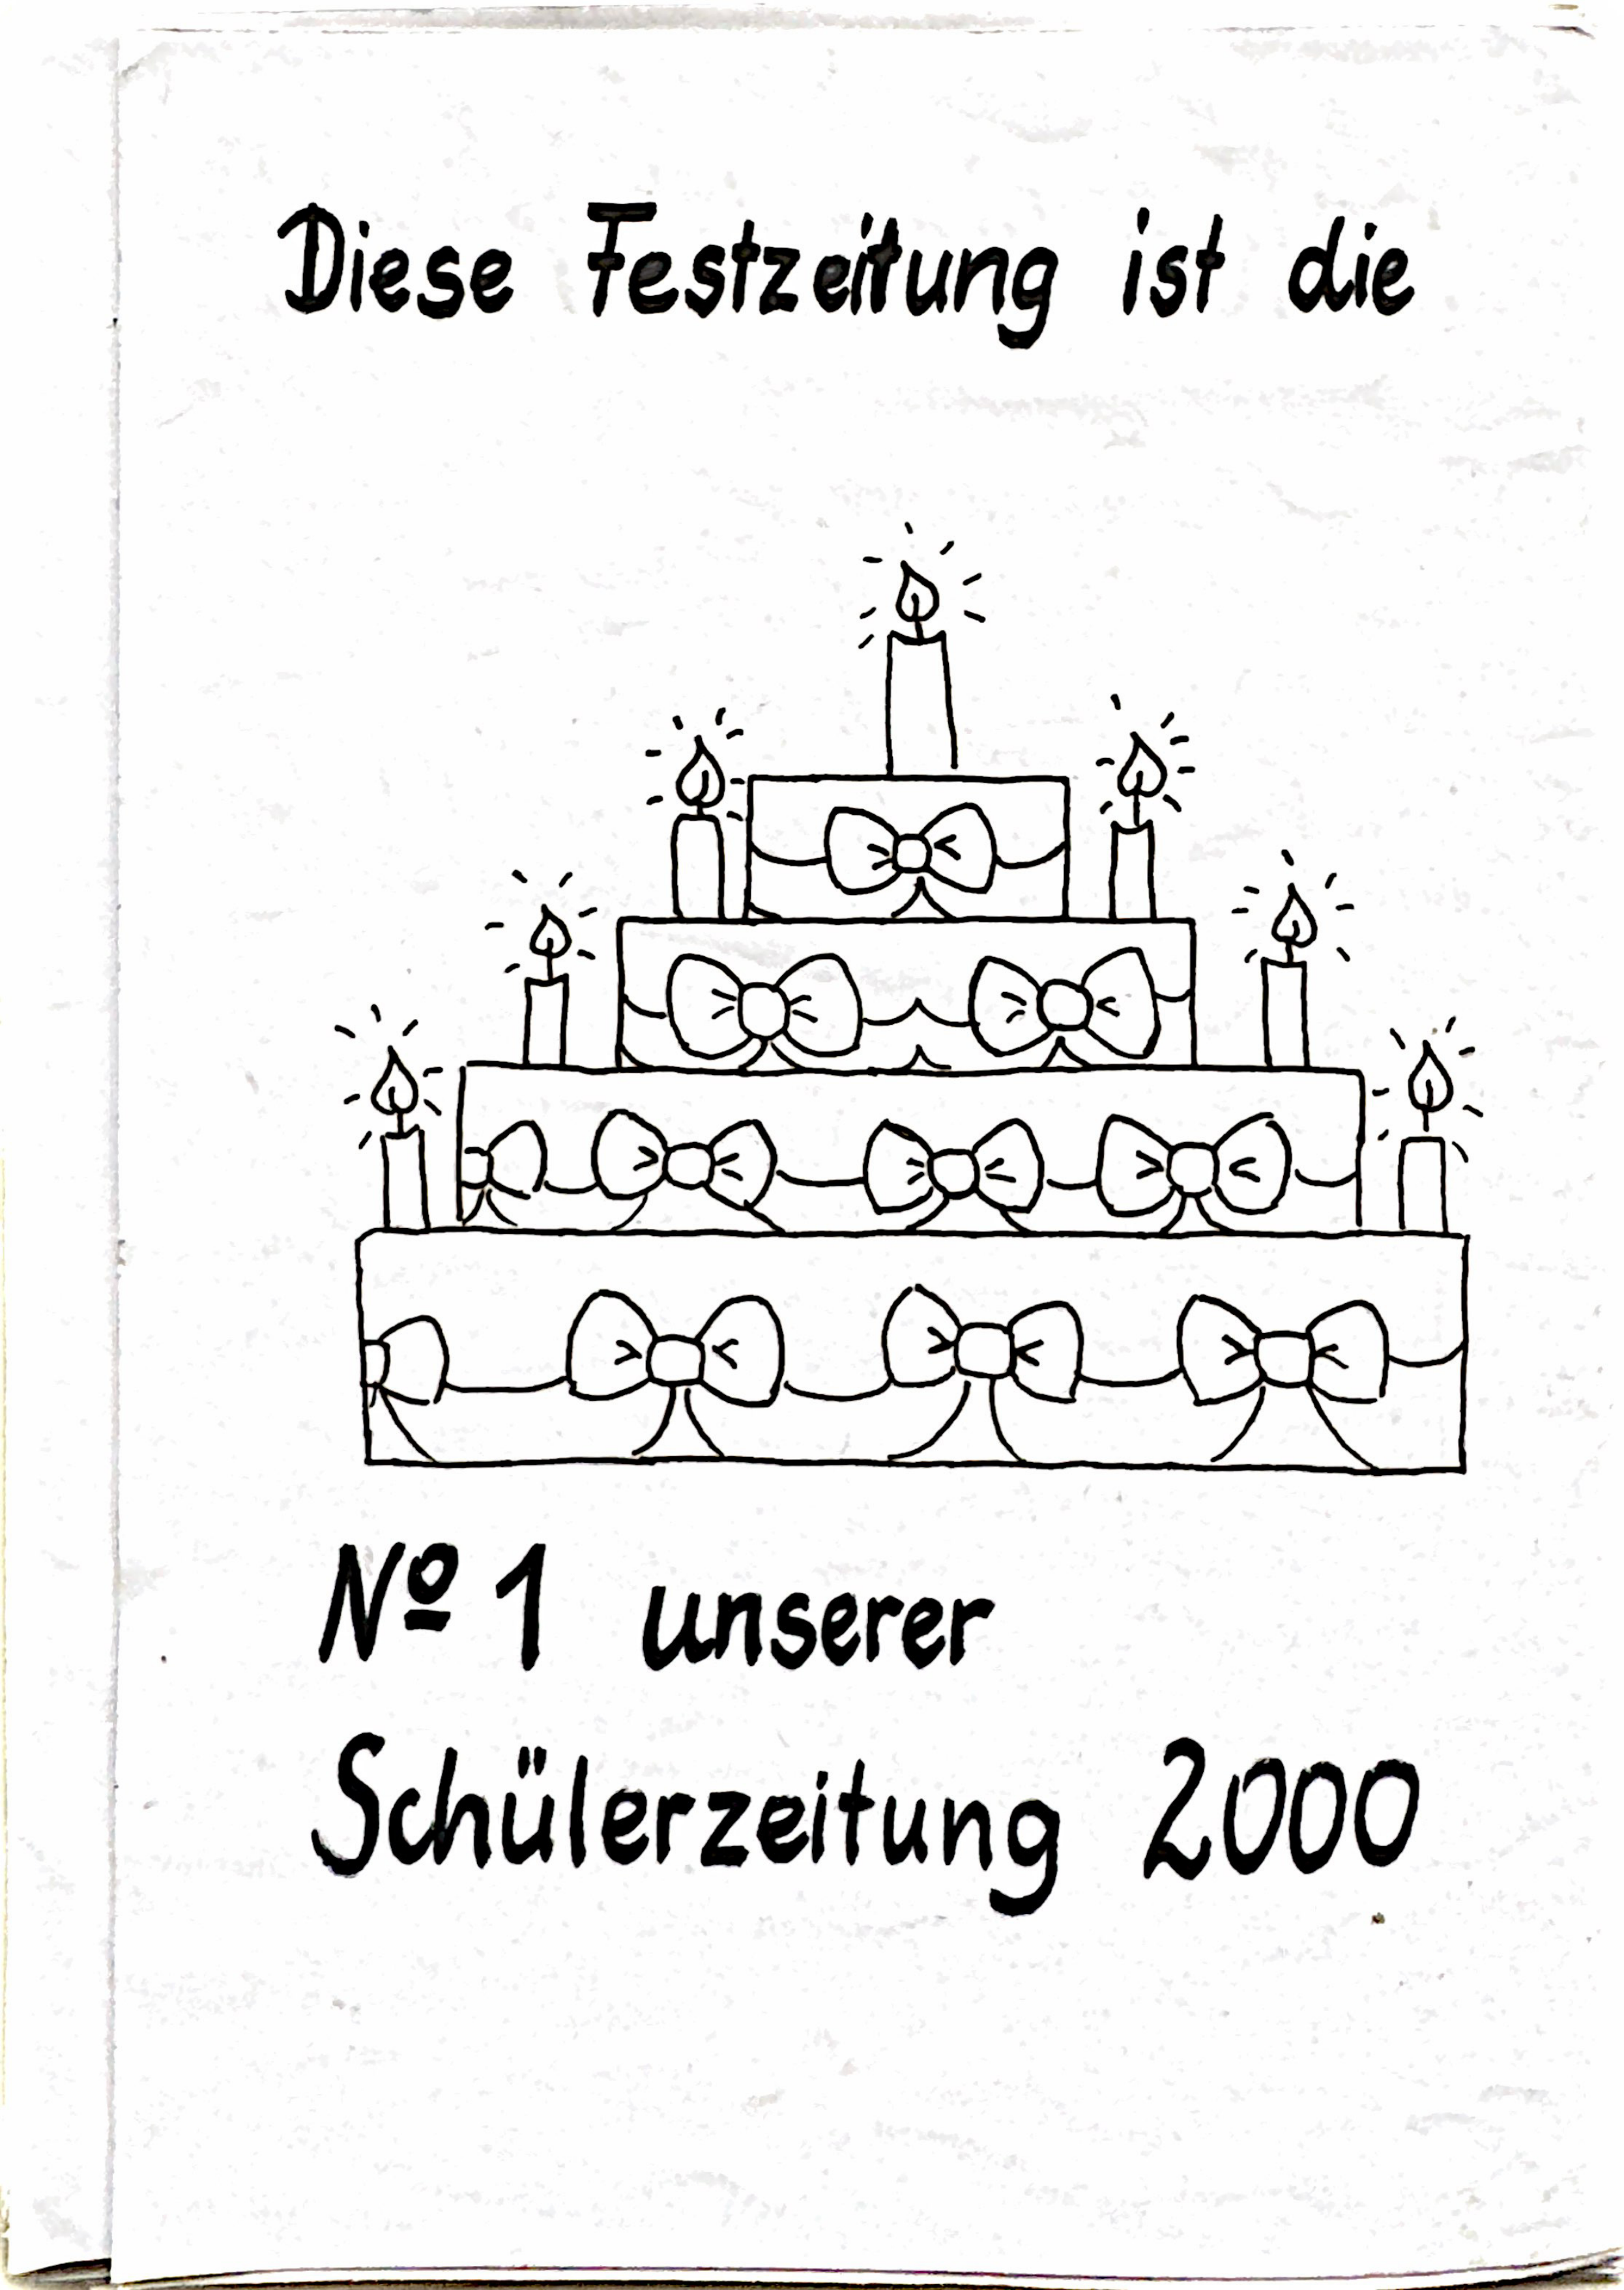 Diese Festzeitung ist die
Nº 1 unserer
Schülerzeitung 2000